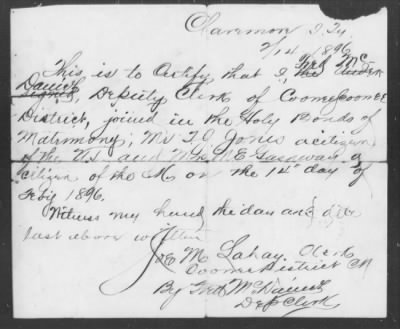 Claremon I. Ty.
2/14 1896
This is to Certify that I, Fred Mc
Daniel, Deputy Clerk of Coowescoowee
District, joined in the Holy Bonds of
Matrimony; Mr T. J. Jones a citizen
of the U.S. and M. E. a
citizen of the on the 14" day of
Feby 1896.
Witness my hand the day and date
last above written
Joe M. Lahay, Clerk
District C.N.
By Fred McDaniel
Dep Clerk